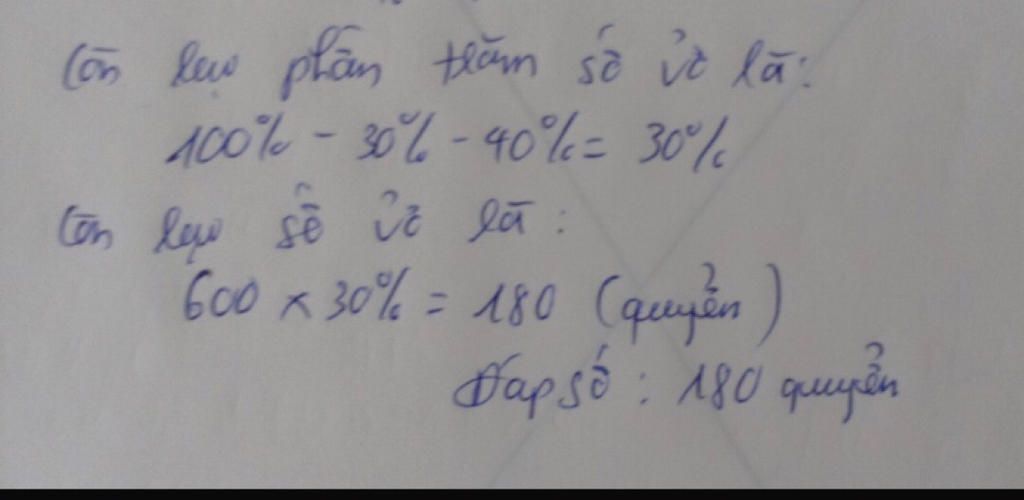 Còn lại phần trăm số vở là:
100% - 30% - 40% = 30%
Còn lại số vở là:
600 x 30% = 180 (quyển)
Đáp số: 180 quyển